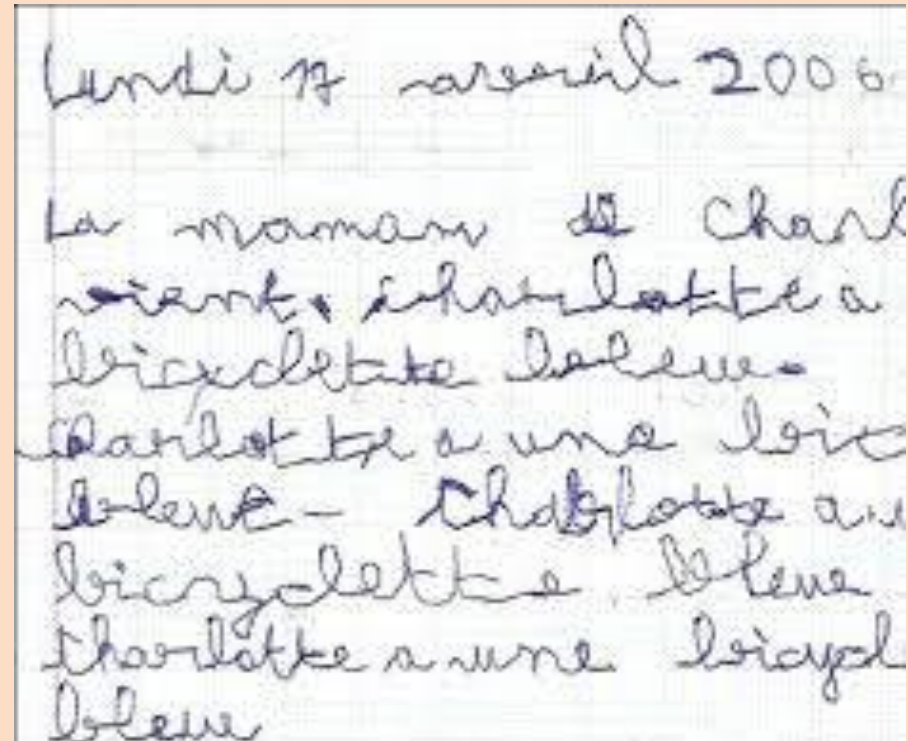 Lundi 17 avril 2006
La maman de Charl
vient. Charlotte a
bicyclette bleue.
Charlotte a une bic
bleue - Charlotte a u
bicyclette bleue
Charlotte a une bicycl
bleue